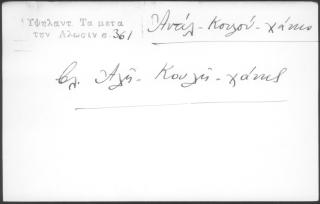 Ὑψηλαντ. Τα μετα
την Αλωσιν σ. 361
Ἀνάλ-Κουλού-χάνιο
βλ. Ἀλῆ-Κουλῆ-χάνης